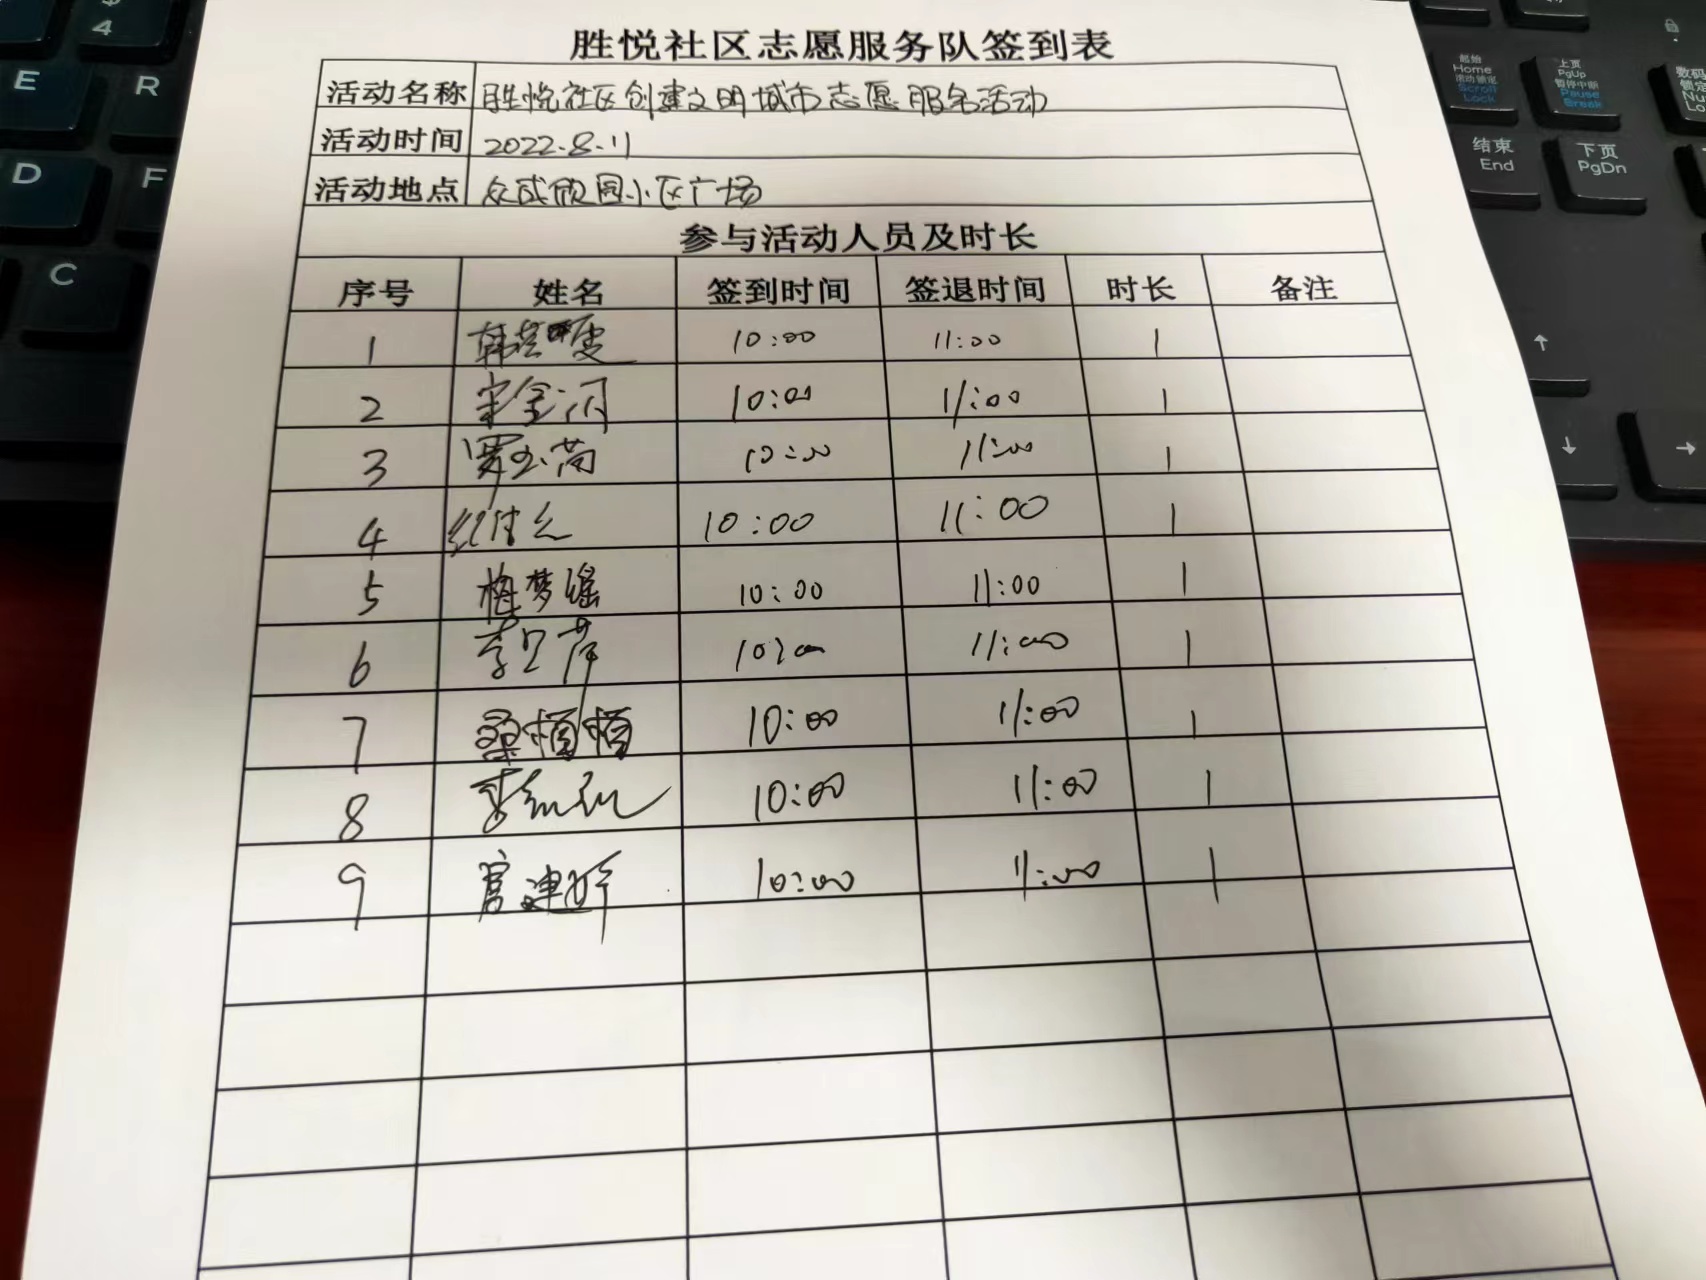 胜悦社区志愿服务队签到表
活动名称 胜悦社区创建文明城市志愿服务活动
活动时间 2022.8.11
活动地点 众成欣园小区广场
参与活动人员及时长
序号 姓名 签到时间 签退时间 时长 备注
1 10:00 11:00 1
2 10:00 11:00 1
3 10:00 11:00 1
4 10:00 11:00 1
5 梅梦瑶 10:00 11:00 1
6 10:00 11:00 1
7 桑栖栖 10:00 11:00 1
8 李红红 10:00 11:00 1
9 10:00 11:00 1
4
E
R
D
F
C
起始
Home
滚动锁定
Scroll
Lock
上页
PgUp
暂停中断
Pause
Break
数码
锁定
结束
End
下页
PgDn
↑
↓
→